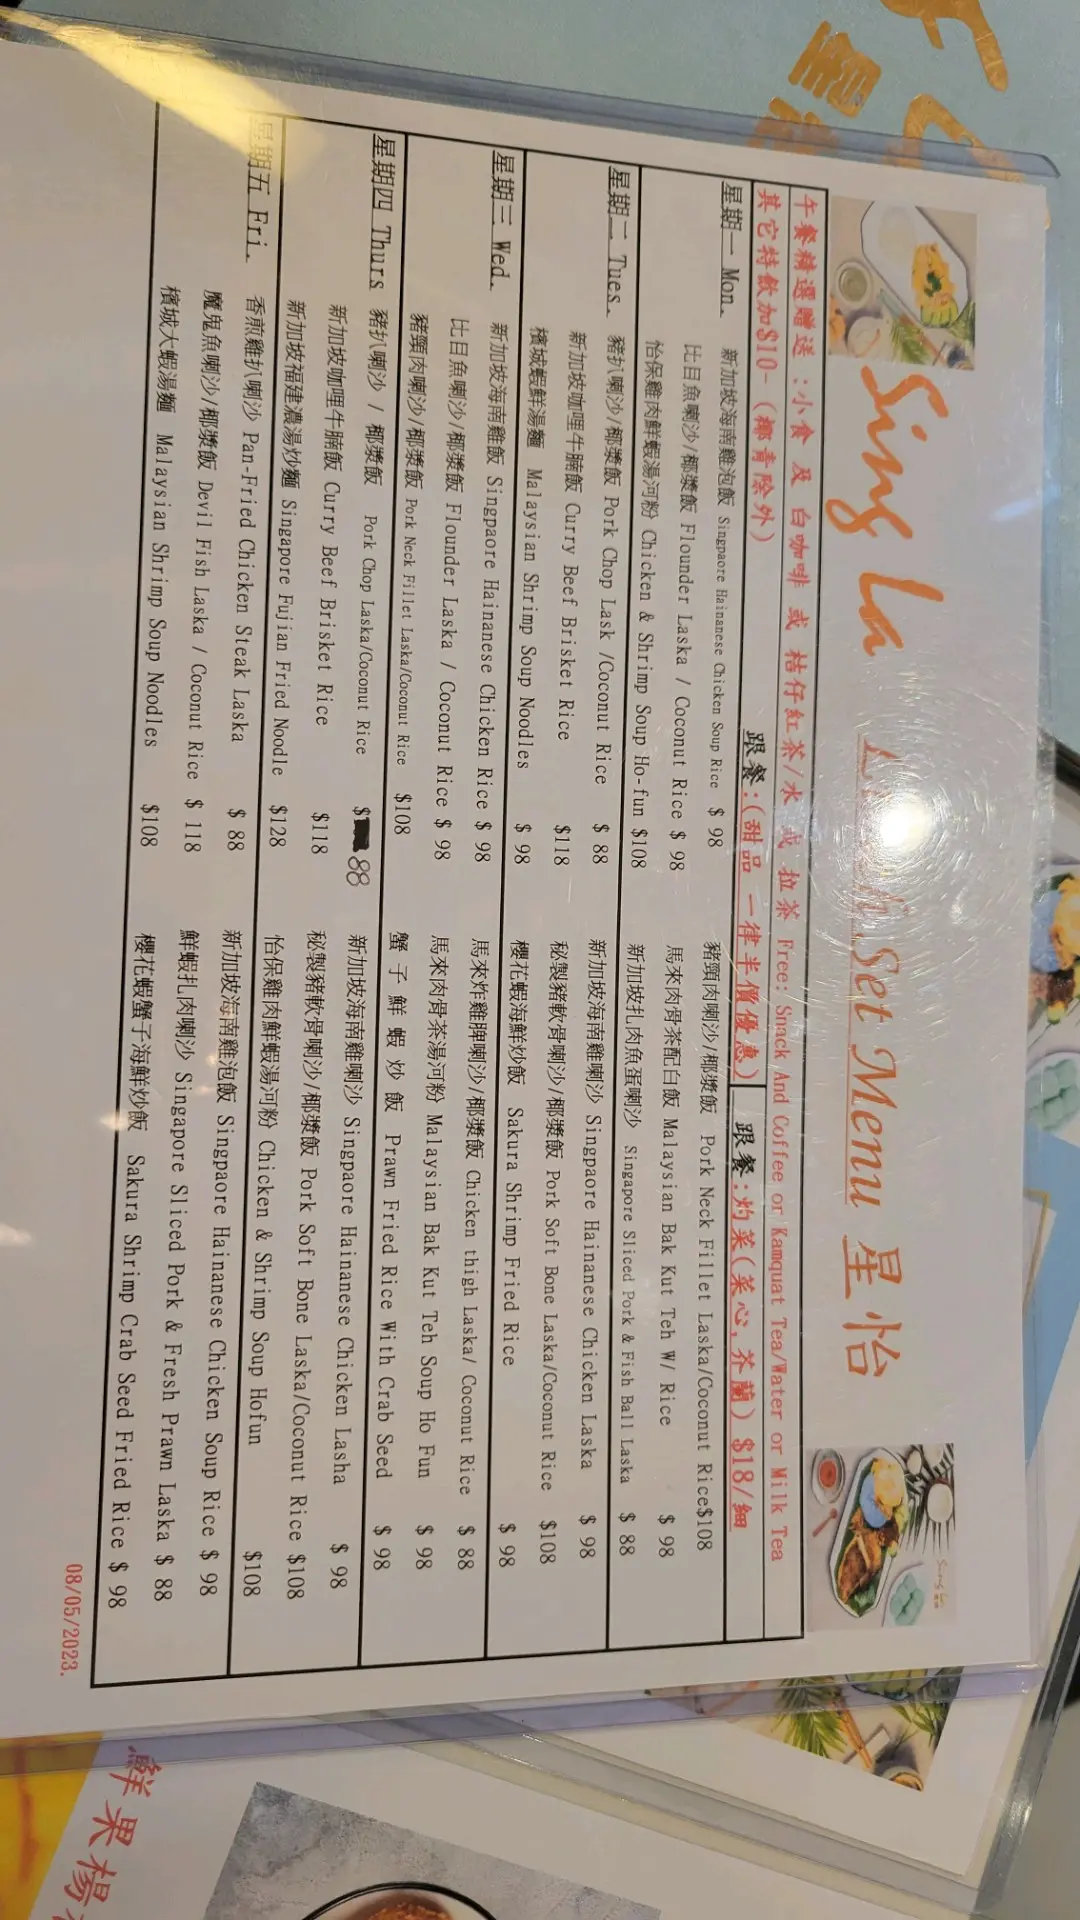 Sing La Set Menu 星怡
午餐精選贈送 :小食 及 白咖啡 或 桔仔紅茶/水 或 拉茶 Free: Snack And Coffee or Kamquat Tea/Water or Milk Tea
其它特飲加$10-(椰青除外)
跟餐:(甜品 一律半價優惠)
跟餐:灼菜(菜心,芥蘭)$18/細
星期一 Mon.
新加坡海南雞泡飯 Singpaore Hainanese Chicken Soup Rice $ 98
豬頸肉喇沙/椰漿飯 Pork Neck Fillet Laska/Coconut Rice$108
比目魚喇沙/椰漿飯 Flounder Laska / Coconut Rice $ 98
馬來肉骨茶配白飯 Malaysian Bak Kut Teh W/ Rice $ 98
怡保雞肉鮮蝦湯河粉 Chicken & Shrimp Soup Ho-fun $108
新加坡扎肉魚蛋喇沙 Singapore Sliced Pork & Fish Ball Laska $ 88
星期二 Tues.
豬扒喇沙/椰漿飯 Pork Chop Lask /Coconut Rice $ 88
新加坡海南雞喇沙 Singpaore Hainanese Chicken Laska $ 98
新加坡咖哩牛腩飯 Curry Beef Brisket Rice $118
秘製豬軟骨喇沙/椰漿飯 Pork Soft Bone Laska/Coconut Rice $108
檳城蝦鮮湯麵 Malaysian Shrimp Soup Noodles $ 98
櫻花蝦海鮮炒飯 Sakura Shrimp Fried Rice $ 98
星期三 Wed.
新加坡海南雞飯 Singpaore Hainanese Chicken Rice $ 98
馬來炸雞脾喇沙/椰漿飯 Chicken thigh Laska/ Coconut Rice $ 88
比目魚喇沙/椰漿飯 Flounder Laska / Coconut Rice $ 98
馬來肉骨茶湯河粉 Malaysian Bak Kut Teh Soup Ho Fun $ 98
豬頸肉喇沙/椰漿飯 Pork Neck Fillet Laska/Coconut Rice $108
蟹子鮮蝦炒飯 Prawn Fried Rice With Crab Seed $ 98
星期四 Thurs
豬扒喇沙 / 椰漿飯 Pork Chop Laska/Coconut Rice $ 88
新加坡海南雞喇沙 Singpaore Hainanese Chicken Lasha $ 98
新加坡咖哩牛腩飯 Curry Beef Brisket Rice $118
秘製豬軟骨喇沙/椰漿飯 Pork Soft Bone Laska/Coconut Rice $108
新加坡福建濃湯炒麵 Singapore Fujian Fried Noodle $128
怡保雞肉鮮蝦湯河粉 Chicken & Shrimp Soup Hofun $108
星期五 Fri.
香煎雞扒喇沙 Pan-Fried Chicken Steak Laska $ 88
新加坡海南雞泡飯 Singpaore Hainanese Chicken Soup Rice $ 98
魔鬼魚喇沙/椰漿飯 Devil Fish Laska / Coconut Rice $ 118
鮮蝦扎肉喇沙 Singapore Sliced Pork & Fresh Prawn Laska $ 88
檳城大蝦湯麵 Malaysian Shrimp Soup Noodles $108
櫻花蝦蟹子海鮮炒飯 Sakura Shrimp Crab Seed Fried Rice $ 98
08/05/2023.
鮮果楊